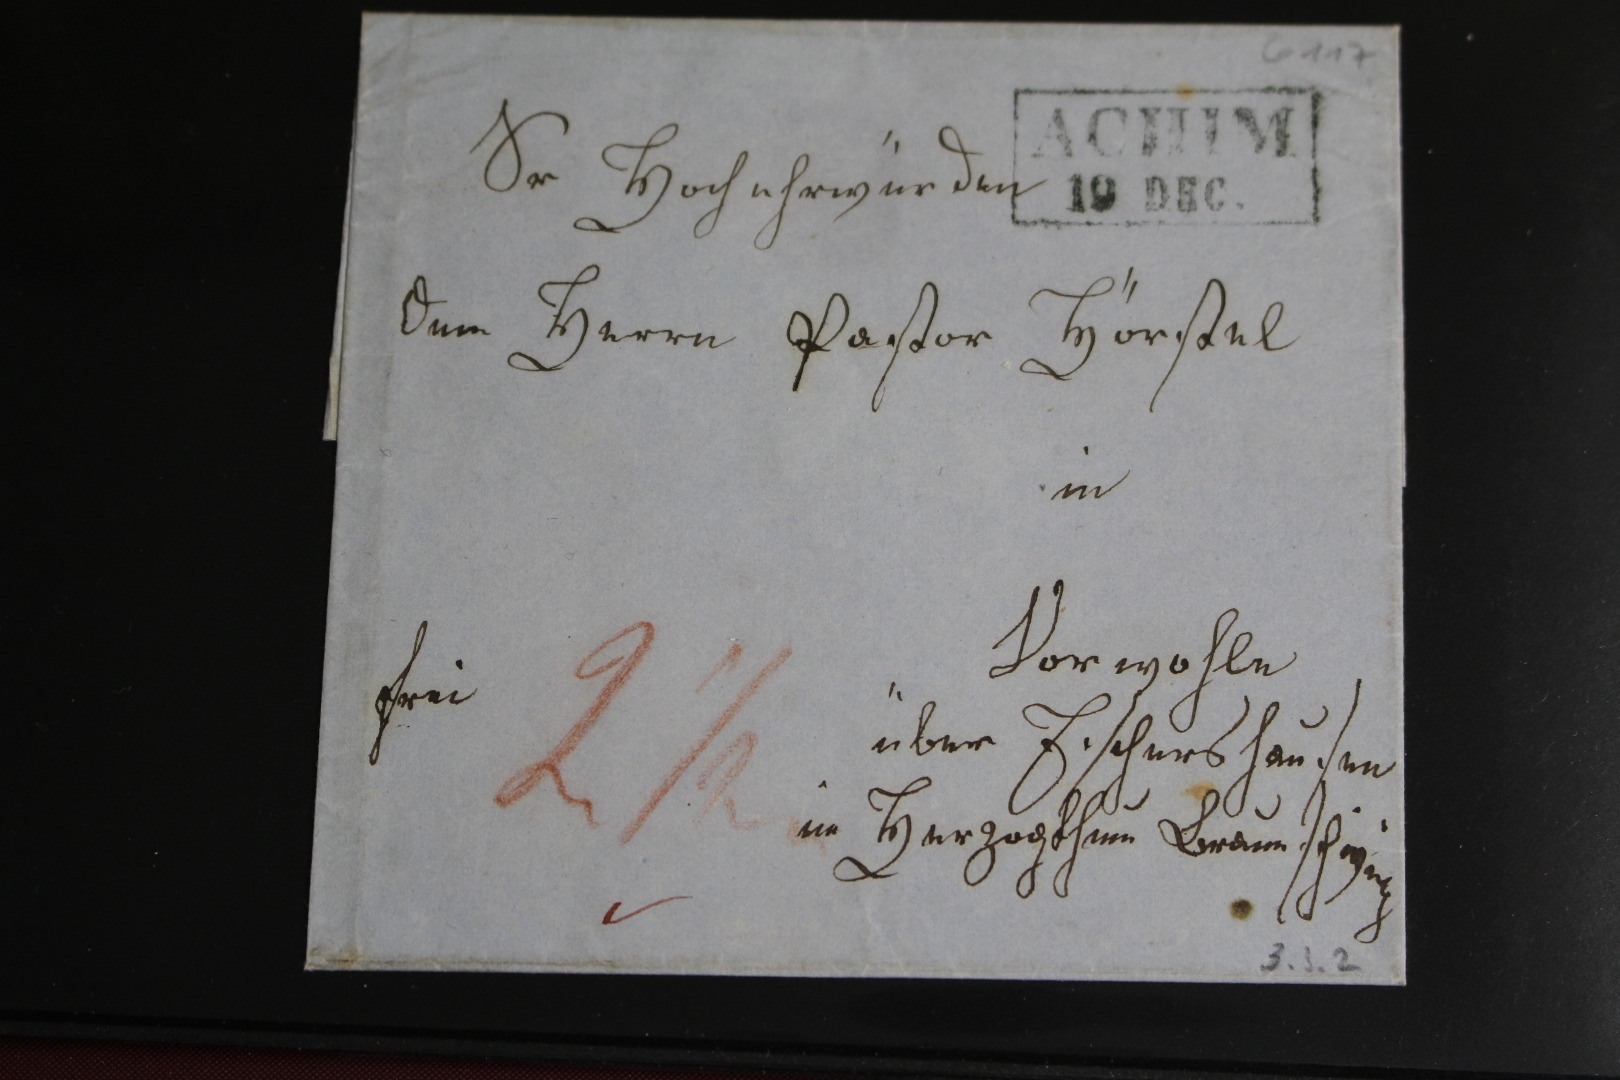 6117
ACHIM
19 DEC.
Sr Hochehrwürden
dem Herrn Pastor Hörstel
in
Vorwohle
frei
2 1/2
über Eschershausen
im Herzogthum Braunschweig
3.3.2